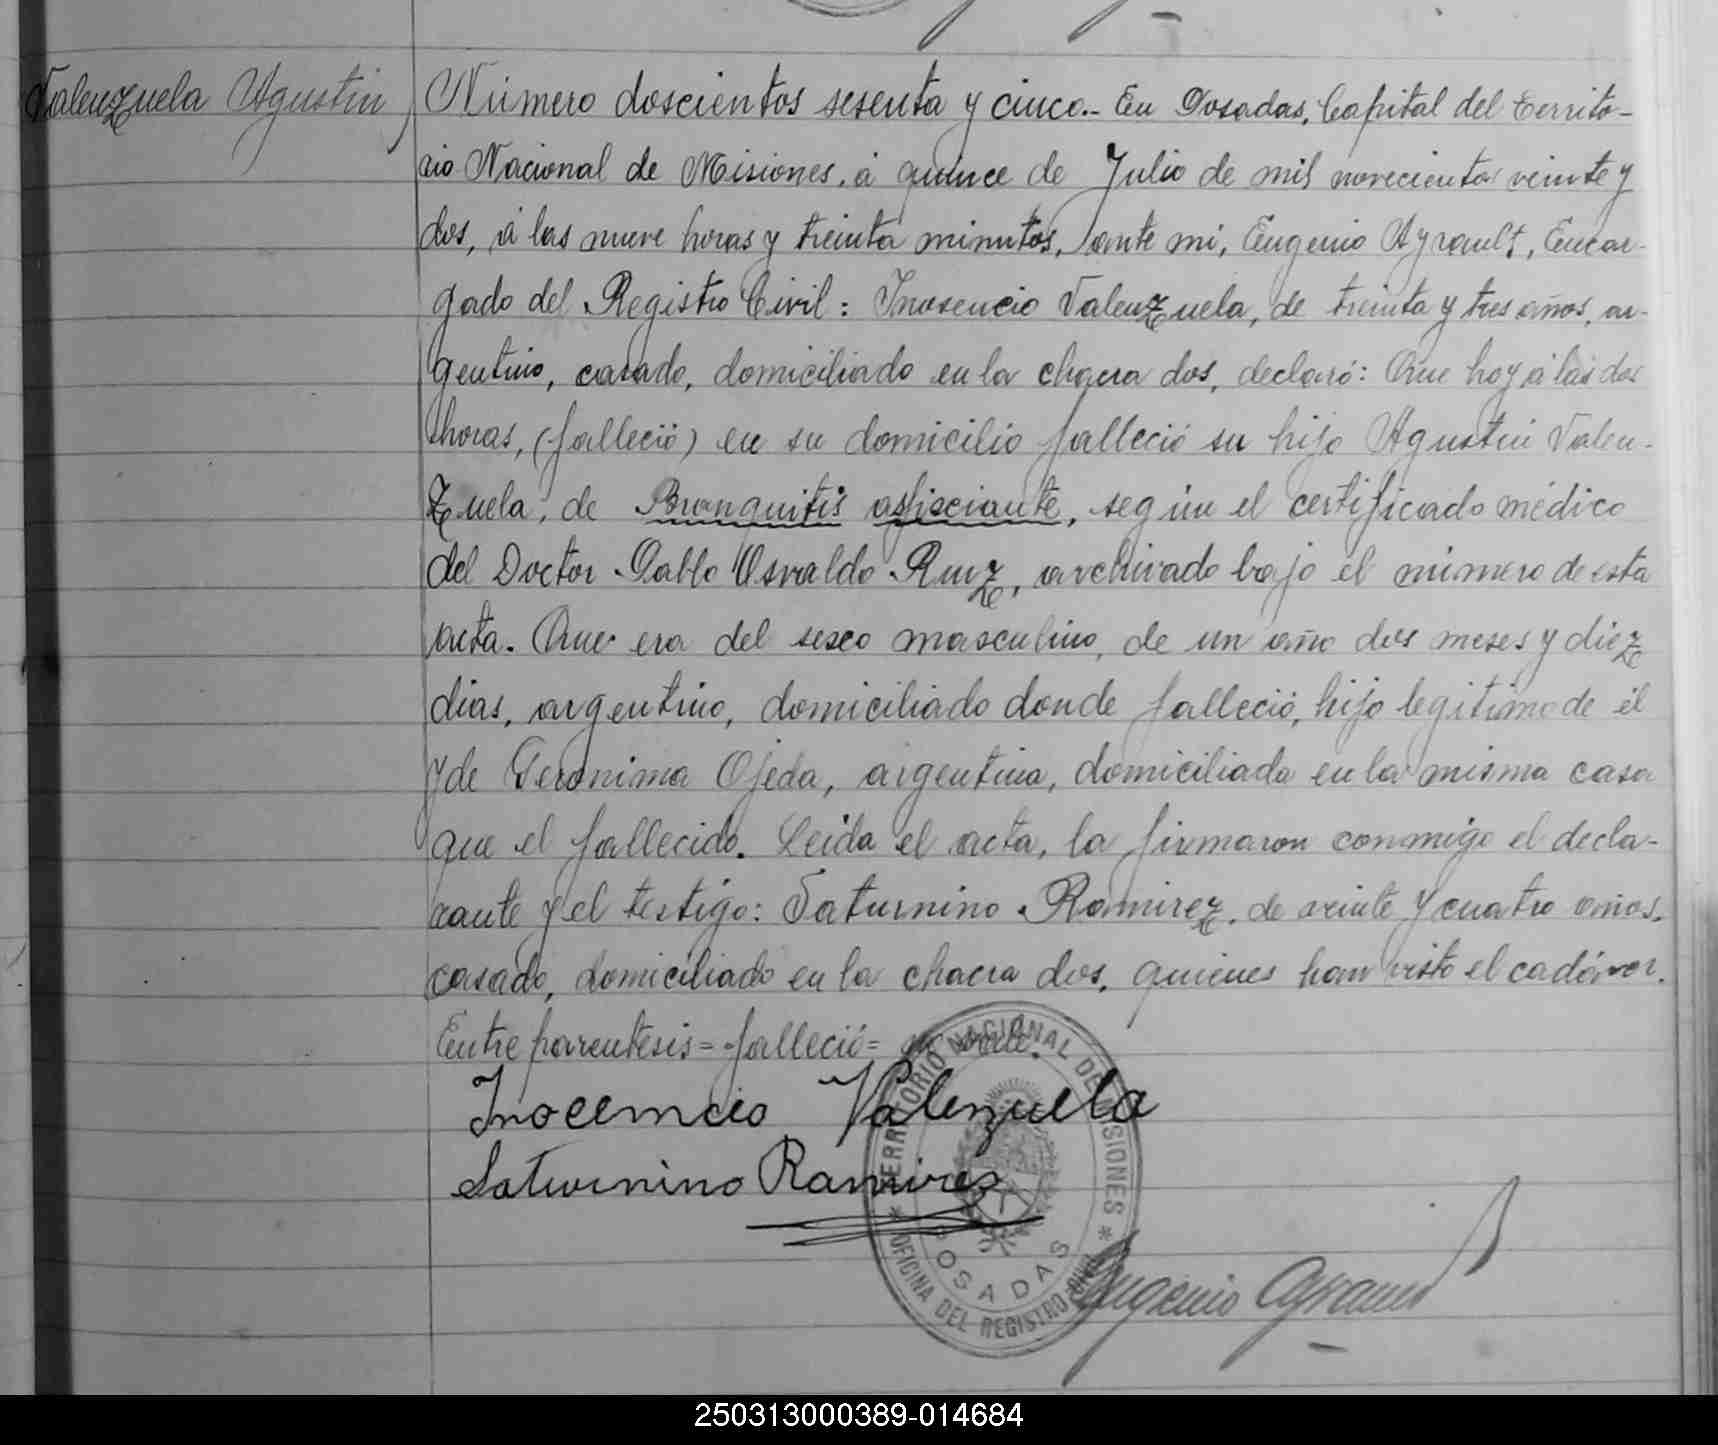 Valenzuela Agustin
Número doscientos sesenta y cinco.- En Posadas, Capital del Territo-
rio Nacional de Misiones, á quince de Julio de mil novecientos veinte y
dos, á las nueve horas y treinta minutos, ante mi, Eugenio Ayrault, Encar-
gado del Registro Civil: Inosencio Valenzuela, de treinta y tres años, ar-
gentino, casado, domiciliado en la chacra dos, declaró: Que hoy á las dos
horas, (falleció) en su domicilio falleció su hijo Agustin Valen-
zuela, de Bronquitis asfixiante, según el certificado médico
del Doctor Pablo Osvaldo Ruiz, archivado bajo el número de esta
acta. Que era del sexo masculino, de un año dos meses y diez
dias, argentino, domiciliado donde falleció, hijo legitimo de él
y de Geronima Ojeda, argentina, domiciliada en la misma casa
que el fallecido. Leida el acta, la firmaron conmigo el decla-
rante y el testigo: Saturnino Ramirez, de veinte y cuatro años,
casado, domiciliado en la chacra dos, quienes han visto el cadáver.
Entre parentesis=falleció= no vale.
Inocemcio Valenzuela
Saturnino Ramires
TERRITORIO NACIONAL DE MISIONES
POSADAS
* OFICINA DEL REGISTRO CIVIL *
Eugenio Ayrault
250313000389-014684